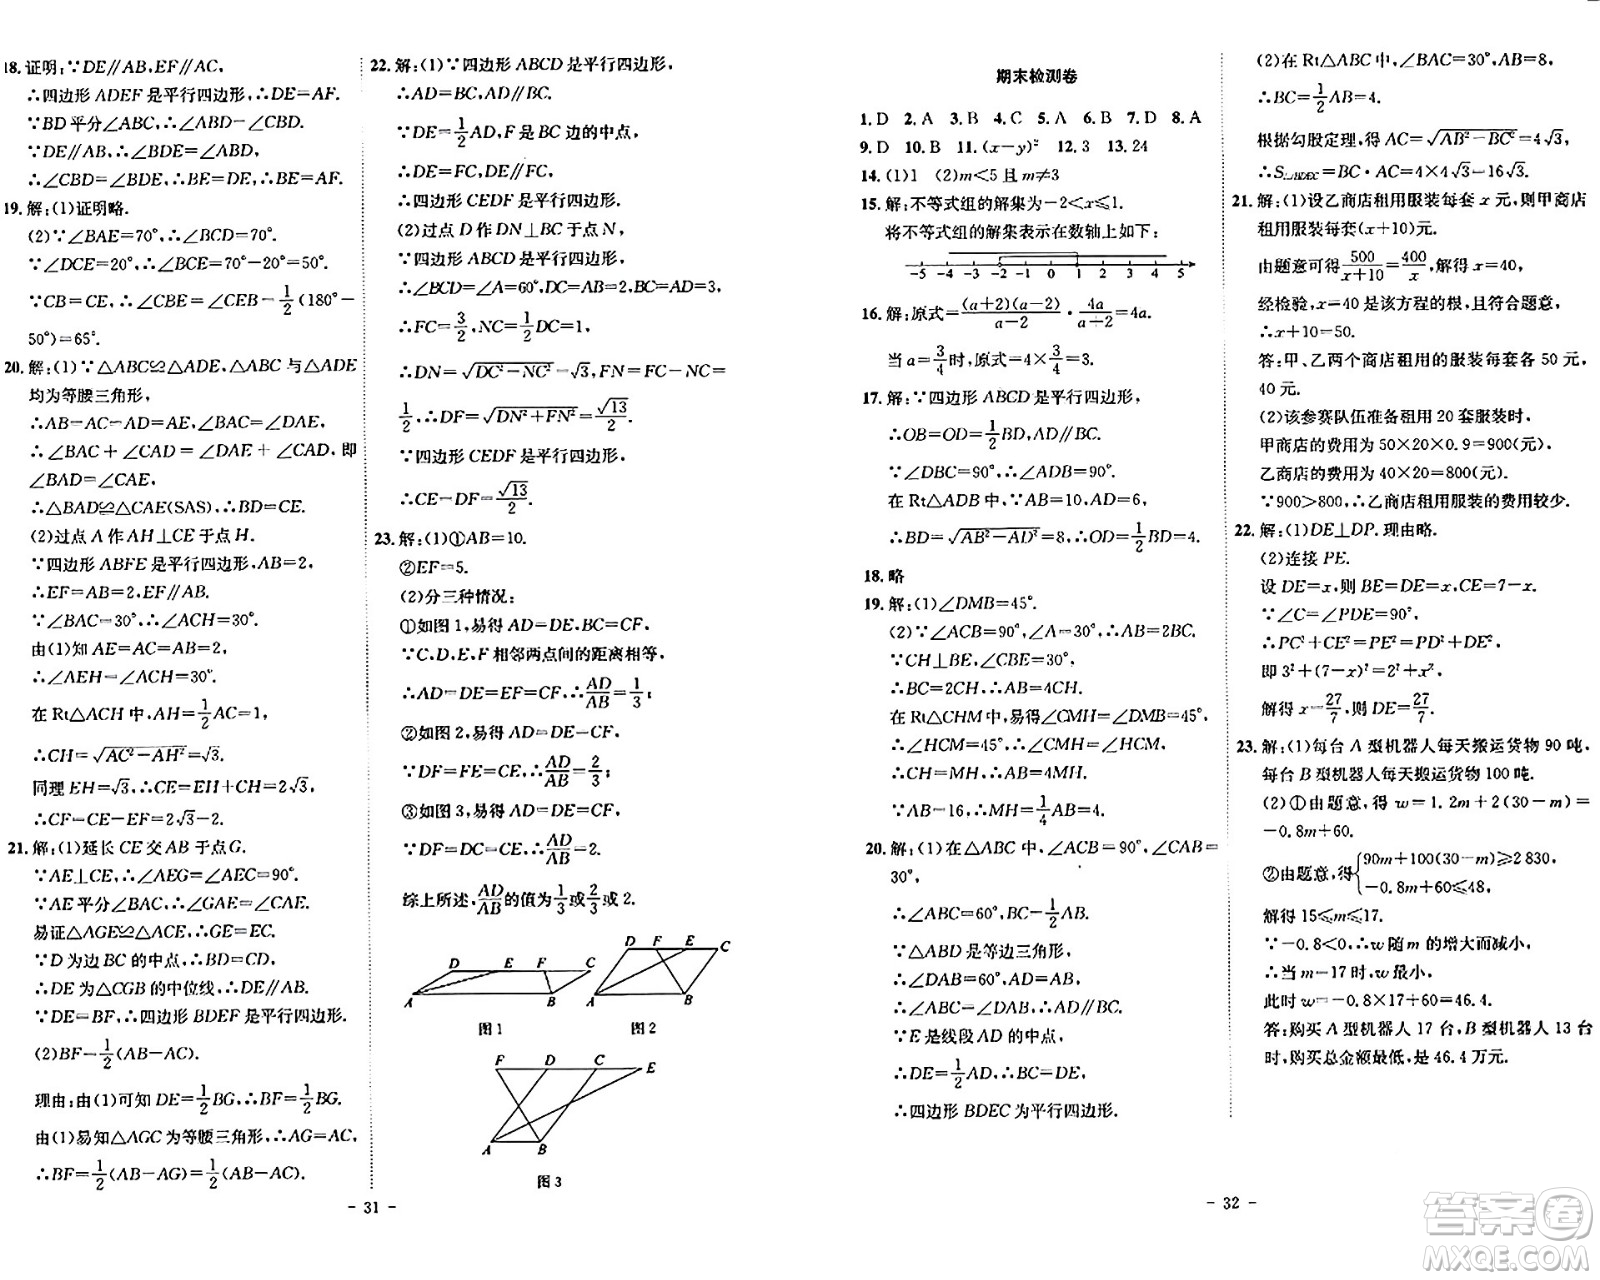 18.证明:∵DE∥AB,EF∥AC,
∴四边形 ADEF 是平行四边形,∴DE=AF.
∵BD 平分∠ABC,∴∠ABD=∠CBD.
∵DE∥AB,∴∠BDE=∠ABD,
∴∠CBD=∠BDE,∴BE=DE,∴BE=AF.
19.解:(1)证明略.
(2)∵∠BAE=70°,∴∠BCD=70°.
∵∠DCE=20°,∴∠BCE=70°-20°=50°.
∵CB=CE,∴∠CBE=∠CEB=\frac{1}{2}(180°-
50°)=65°.
20.解:(1)∵△ABC≌△ADE,△ABC与△ADE
均为等腰三角形,
∴AB=AC=AD=AE,∠BAC=∠DAE,
∴∠BAC+∠CAD=∠DAE+∠CAD,即
∠BAD=∠CAE,
∴△BAD≌△CAE(SAS),∴BD=CE.
(2)过点 A 作 AH⊥CE 于点 H.
∵四边形 ABFE 是平行四边形,AB=2,
∴EF=AB=2,EF∥AB.
∵∠BAC=30°,∴∠ACH=30°.
由(1)知 AE=AC=AB=2,
∴∠AEH=∠ACH=30°.
在 Rt△ACH 中,AH=\frac{1}{2}AC=1,
∴CH=\sqrt{AC²-AH²}=\sqrt{3}.
同理 EH=\sqrt{3},∴CE=EH+CH=2\sqrt{3},
∴CF=CE-EF=2\sqrt{3}-2.
21.解:(1)延长 CE 交 AB 于点G.
∵AE⊥CE,∴∠AEG=∠AEC=90°.
∵AE 平分∠BAC,∴∠GAE=∠CAE.
易证△AGE≌△ACE,∴GE=EC.
∵D 为边 BC 的中点,∴BD=CD,
∴DE 为△CGB 的中位线,∴DE∥AB.
∵DE=BF,∴四边形 BDEF 是平行四边形.
(2)BF=\frac{1}{2}(AB-AC).
理由:由(1)可知 DE=\frac{1}{2}BG,∴BF=\frac{1}{2}BG.
由(1)易知△AGC 为等腰三角形,∴AG=AC,
∴BF=\frac{1}{2}(AB-AG)=\frac{1}{2}(AB-AC).
22.解:(1)∵四边形 ABCD 是平行四边形,
∴AD=BC,AD∥BC.
∵DE=\frac{1}{2}AD,F 是 BC 边的中点,
∴DE=FC,DE∥FC,
∴四边形 CEDF 是平行四边形.
(2)过点 D 作 DN⊥BC 于点 N,
∵四边形 ABCD 是平行四边形,
∴∠BCD=∠A=60°,DC=AB=2,BC=AD=3,
∴FC=\frac{3}{2},NC=\frac{1}{2}DC=1,
∴DN=\sqrt{DC²-NC²}=\sqrt{3},FN=FC-NC=
\frac{1}{2},∴DF=\sqrt{DN²+FN²}=\frac{\sqrt{13}}{2}.
∵四边形 CEDF 是平行四边形,
∴CE=DF=\frac{\sqrt{13}}{2}.
23.解:(1)①AB=10.
②EF=5.
(2)分三种情况:
①如图 1,易得 AD=DE,BC=CF,
∵C,D,E,F 相邻两点间的距离相等,
∴AD=DE=EF=CF,∴\frac{AD}{AB}=\frac{1}{3};
②如图 2,易得 AD=DE=CF,
∵DF=FE=CE,∴\frac{AD}{AB}=\frac{2}{3};
③如图 3,易得 AD=DE=CF,
∵DF=DC=CE,∴\frac{AD}{AB}=2.
综上所述,\frac{AD}{AB}的值为\frac{1}{3}或\frac{2}{3}或 2.
D E F C
A B
图 1
D F E C
A B
图 2
F D C E
A B
图 3
- 31 -
期末检测卷
1.D 2.A 3.B 4.C 5.A 6.B 7.D 8.A
9.D 10.B 11.(x-y)² 12.3 13.24
14.(1)1 (2)m<5 且 m≠3
15.解:不等式组的解集为-2<x≤1.
将不等式组的解集表示在数轴上如下:
-5 -4 -3 -2 -1 0 1 2 3 4 5
16.解:原式=\frac{(a+2)(a-2)}{a-2}·\frac{4a}{a+2}=4a.
当 a=\frac{3}{4}时,原式=4×\frac{3}{4}=3.
17.解:∵四边形 ABCD 是平行四边形,
∴OB=OD=\frac{1}{2}BD,AD∥BC.
∵∠DBC=90°,∴∠ADB=90°.
在 Rt△ADB 中,∵AB=10,AD=6,
∴BD=\sqrt{AB²-AD²}=8,∴OD=\frac{1}{2}BD=4.
18.略
19.解:(1)∠DMB=45°.
(2)∵∠ACB=90°,∠A=30°,∴AB=2BC.
∵CH⊥BE,∠CBE=30°,
∴BC=2CH,∴AB=4CH.
在 Rt△CHM 中,易得∠CMH=∠DMB=45°,
∴∠HCM=45°=∠CMH,
∴CH=MH,∴AB=4MH.
∵AB=16,∴MH=\frac{1}{4}AB=4.
20.解:(1)在△ABC 中,∠ACB=90°,∠CAB=
30°,
∴∠ABC=60°,BC=\frac{1}{2}AB.
∵△ABD 是等边三角形,
∴∠DAB=60°,AD=AB,
∴∠ABC=∠DAB,∴AD∥BC.
∵E 是线段 AD 的中点,
∴DE=\frac{1}{2}AD,∴DE=BC,
∴四边形 BDEC 为平行四边形.
(2)在 Rt△ABC 中,∠BAC=30°,AB=8,
∴BC=\frac{1}{2}AB=4.
根据勾股定理,得 AC=\sqrt{AB²-BC²}=4\sqrt{3},
∴S▱BDEC=BC·AC=4×4\sqrt{3}=16\sqrt{3}.
21.解:(1)设乙商店租用服装每套 x 元,则甲商店
租用服装每套(x+10)元.
由题意可得\frac{500}{x+10}=\frac{400}{x},解得 x=40,
经检验,x=40 是该方程的根,且符合题意,
∴x+10=50.
答:甲、乙两个商店租用的服装每套各 50 元,
40 元.
(2)该参赛队伍准备租用 20 套服装时,
甲商店的费用为 50×20×0.9=900(元),
乙商店的费用为 40×20=800(元).
∵900>800,∴乙商店租用服装的费用较少.
22.解:(1)DE⊥DP.理由略.
(2)连接 PE.
设 DE=x,则 BE=DE=x,CE=7-x.
∵∠C=∠PDE=90°,
∴PC²+CE²=PE²=PD²+DE²,
即 3²+(7-x)²=2²+x²,
解得 x=\frac{27}{7},则 DE=\frac{27}{7}.
23.解:(1)每台 A 型机器人每天搬运货物 90 吨,
每台 B 型机器人每天搬运货物 100 吨.
(2)①由题意,得 w=1.2m+2(30-m)=
-0.8m+60.
②由题意,得{90m+100(30-m)≥2 830,
-0.8m+60≤48,
解得 15≤m≤17.
∵-0.8<0,∴w 随 m 的增大而减小,
∴当 m=17 时,w 最小,
此时 w=-0.8×17+60=46.4.
答:购买 A 型机器人 17 台,B 型机器人 13 台
时,购买总金额最低,是 46.4 万元.
- 32 -
答案圈
MXQE.COM